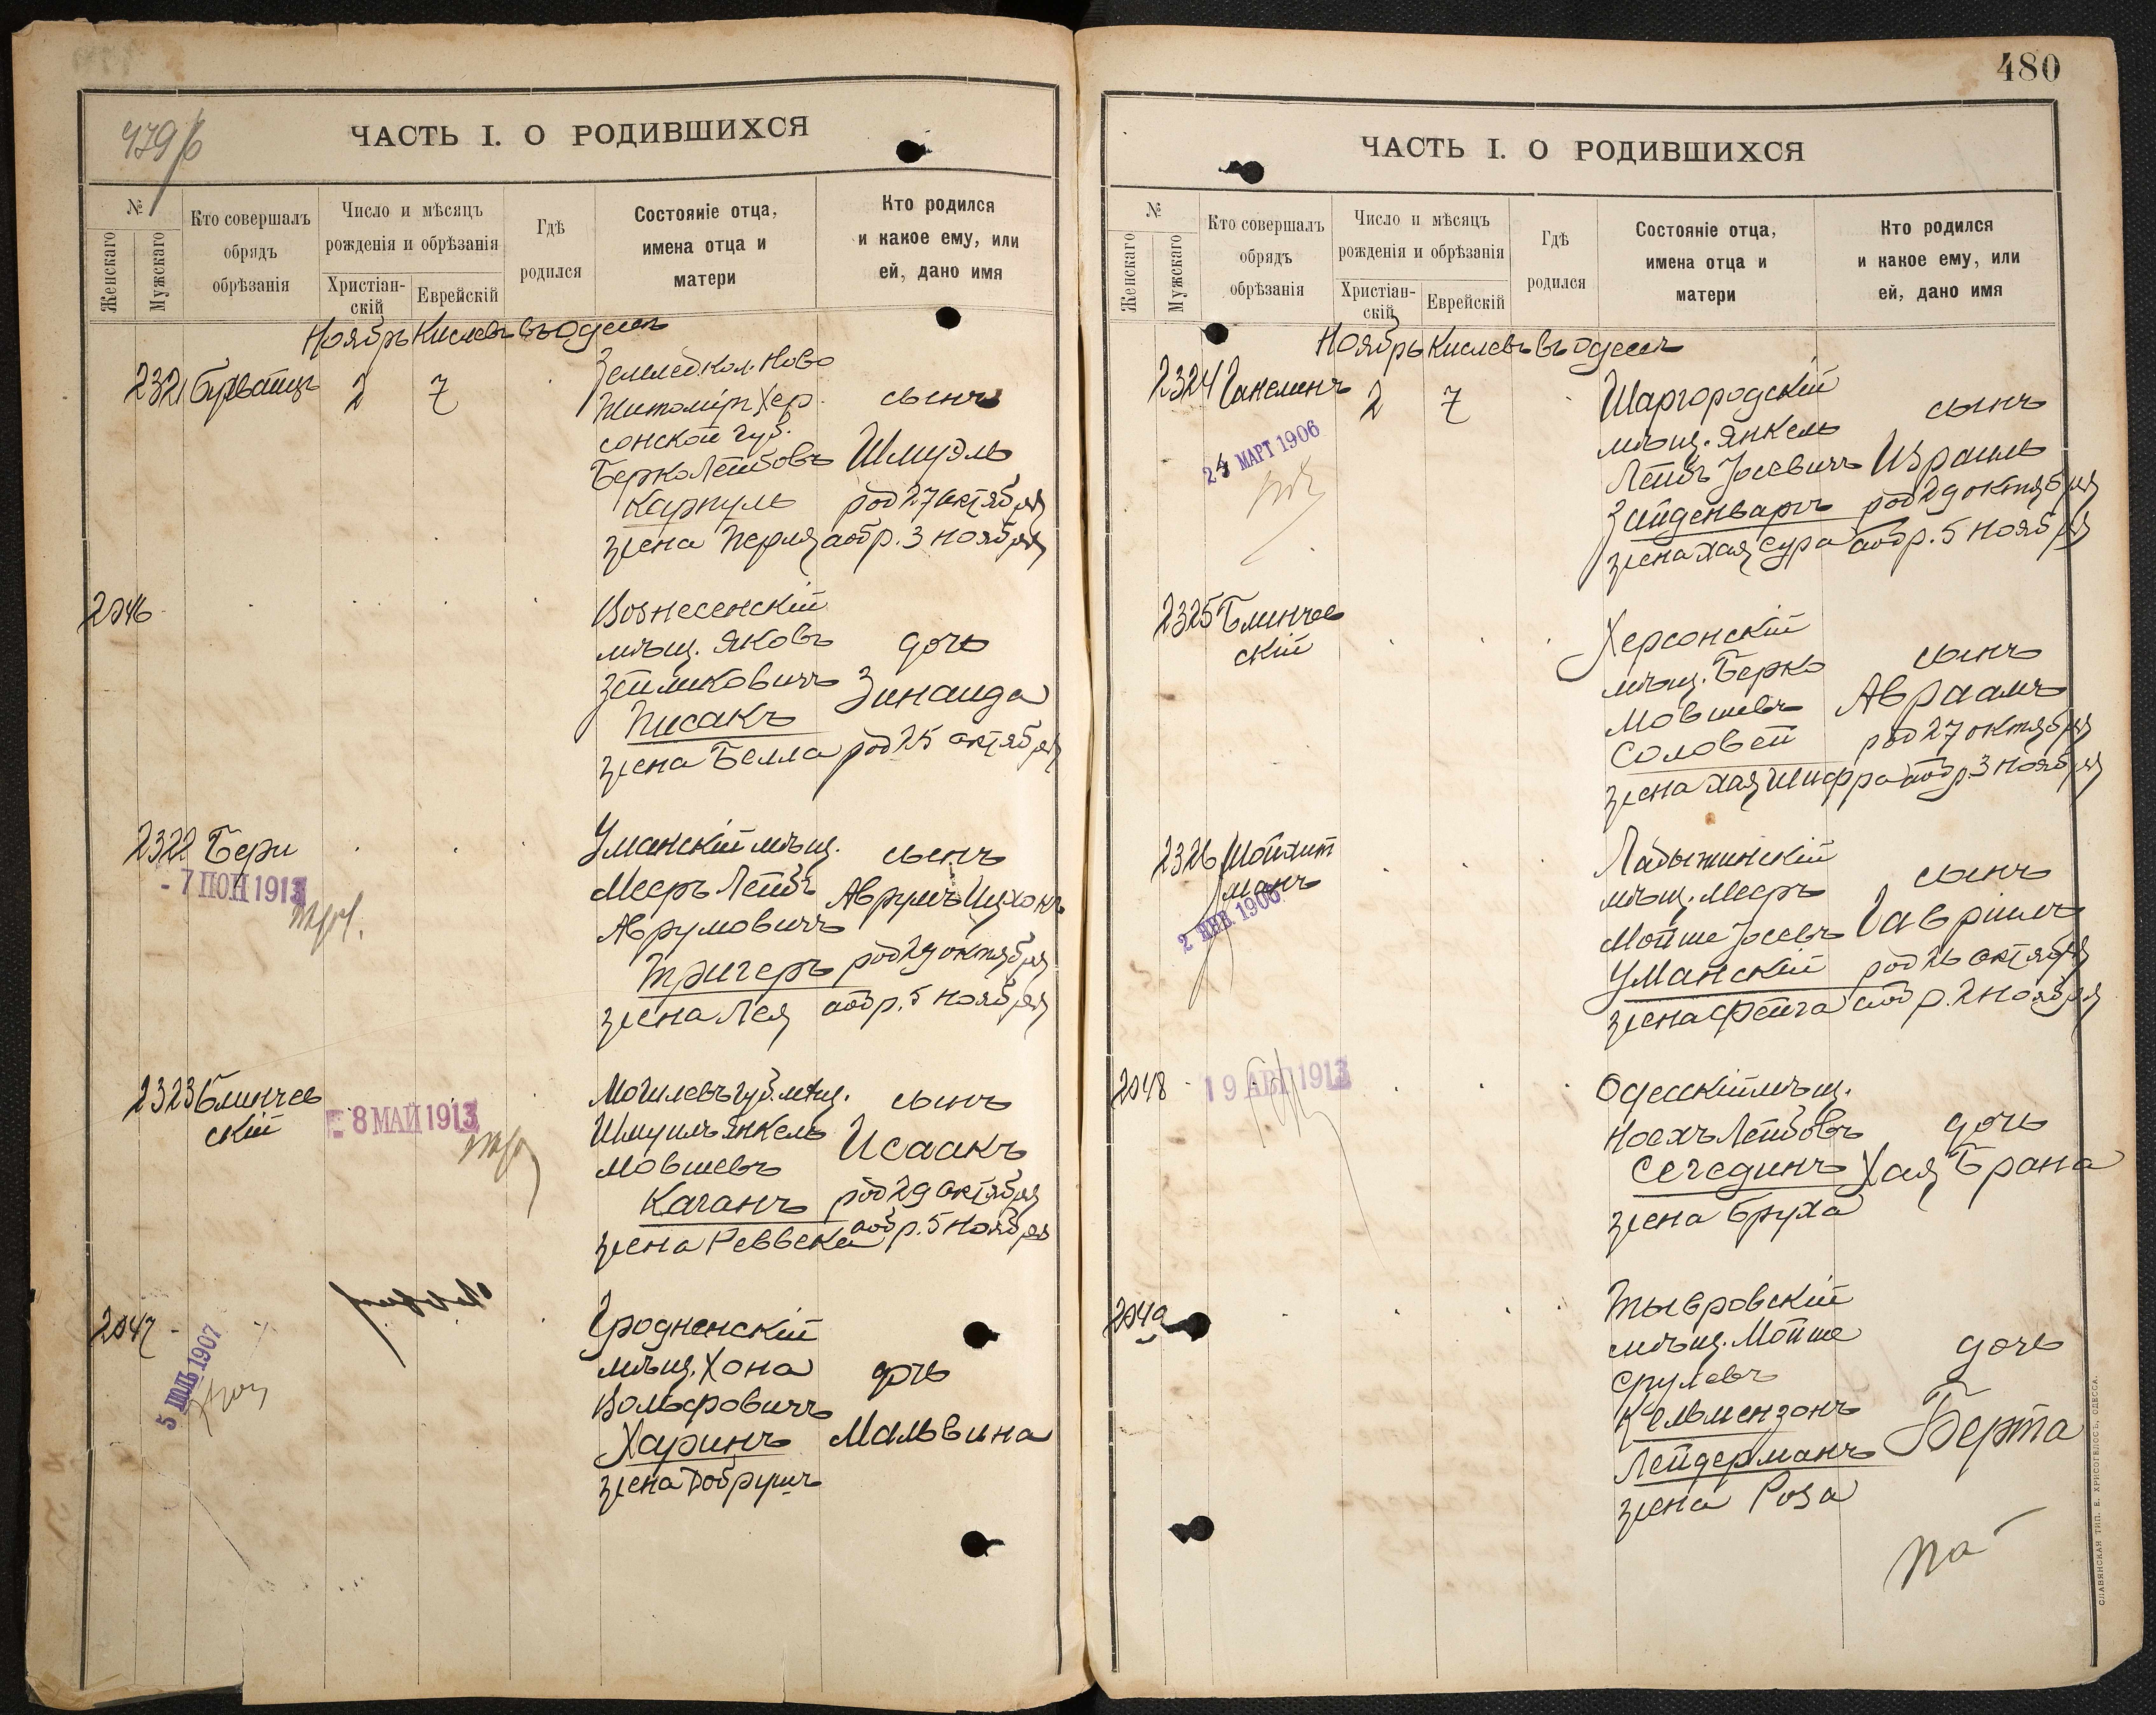 479/б
ЧАСТЬ I. О РОДИВШИХСЯ
№
Женскаго
Мужскаго
Кто совершалъ
обрядъ
обрѣзанія
Число и мѣсяцъ
рожденія и обрѣзанія
Христіан-
скій
Еврейскій
Гдѣ
родился
Состояніе отца,
имена отца и
матери
Кто родился
и какое ему, или
ей, дано имя
Ноябрь Кислевъ въ Одессѣ
2321 2 7
Землед. кол. Ново
Житоміръ Хер
сонской губ.
Берко Лейбовъ
Карпуль
жена Перля
сынъ
Шмуэль
род 27 октября
а обр. 3 ноября
2046
Вознесенскій
мѣщ. Яковъ
Зейликовичъ
Писакъ
жена Белла
дочь
Зинаида
род 25 октября
2322 Бери
- 7 ІЮН 1913
Уманскій мѣщ.
Мееръ Лейбъ
Аврумовичъ
Тригеръ
жена Лея
сынъ
Аврумъ Ицхокъ
род 29 октября
а обр. 5 ноября
2323 Блинчев
скій
8 МАЙ 1913
Могилевъ губ. мѣщ.
Шмуилъ Янкель
Мовшевъ
Каганъ
жена Реввека
сынъ
Исаакъ
род 29 октября
а обр. 5 ноября
2047
5 ІЮЛЬ 1907
Гродненскій
мѣщ. Хона
Вольфовичъ
Харинъ
жена Добрушъ
дочь
Мальвина
480
ЧАСТЬ I. О РОДИВШИХСЯ
№
Женскаго
Мужскаго
Кто совершалъ
обрядъ
обрѣзанія
Число и мѣсяцъ
рожденія и обрѣзанія
Христіан-
скій
Еврейскій
Гдѣ
родился
Состояніе отца,
имена отца и
матери
Кто родился
и какое ему, или
ей, дано имя
Ноябрь Кислевъ въ Одессѣ
2324 Ганелинъ 2 7
24 МАРТ 1906
Шаргородскій
мѣщ. Янкель
Лейбъ Іосевичъ
Зайденваръ
жена Хая Сура
сынъ
Израиль
род 29 октября
а обр. 5 ноября
2325 Блинчев
скій
Херсонскій
мѣщ. Берко
Мовшевъ
Соловей
жена Хая Шифра
сынъ
Авраамъ
род 27 октября
а обр. 3 ноября
2326 Мойхит
манъ
2 ЯНВ. 1906
Ладыжинскій
мѣщ. Мееръ
Мойше Іосевъ
Уманскій
жена Фейга
сынъ
Гавріилъ
род 26 октября
а обр. 2 ноября
2048
19 АВГ 1913
Одесскій мѣщ.
Носхъ Лейбовъ
Сегединъ
жена Бруха
дочь
Хая Брана
2049
Тывровскій
мѣщ. Мойше
Срулевъ
Кельмензонъ
Лейдерманъ
жена Роза
дочь
Берта
СЛАВЯНСКАЯ ТИП. Е. ХРИСОГЕЛОСЪ, ОДЕССА.